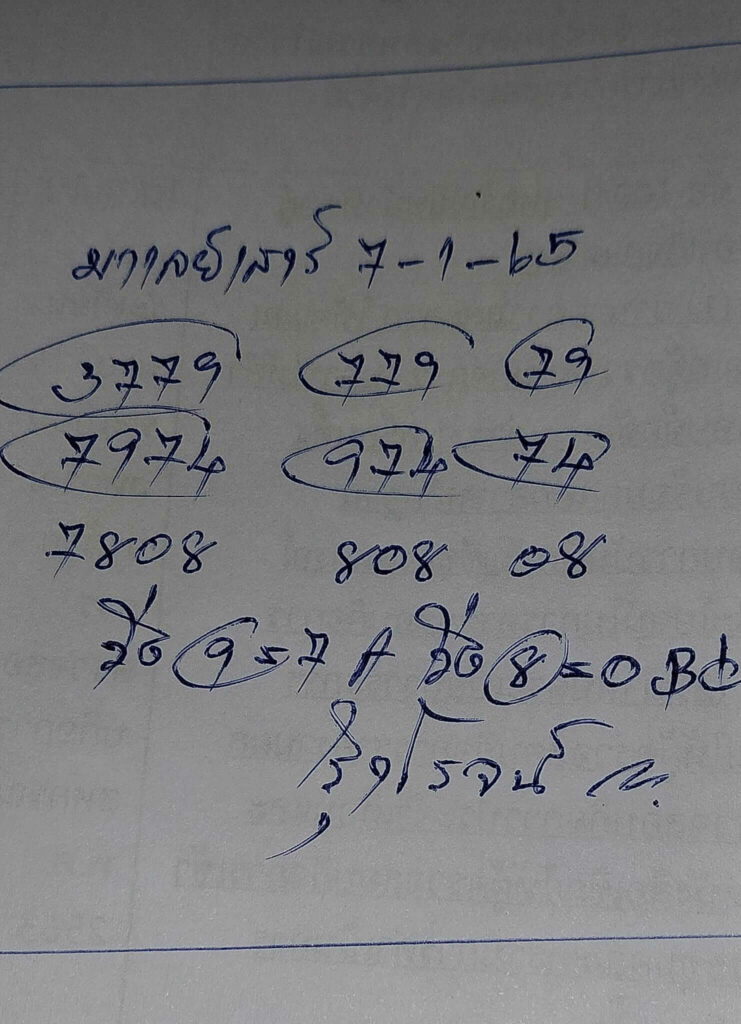 มาเลย์เสาร์ 7-1-65
3779 779 79
7974 974 74
7808 808 08
วิ่ง 9=7 A วิ่ง 8=0 B
รุ่งโรจน์